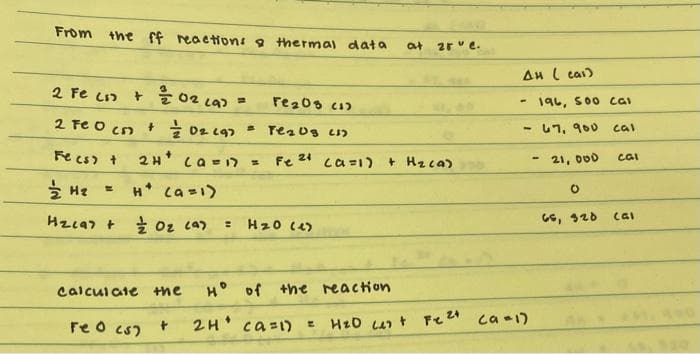 From the ff reactions & thermal data at 25°c.
ΔH (cal)
2 Fe (s) + 3/2 O2 (g) = Fe2O3 (s) - 196, 500 cal
2 Fe O (s) + 1/2 O2 (g) = Fe2O3 (s) - 67, 900 cal
Fe (s) + 2H⁺ (a=1) = Fe²⁺ (a=1) + H2(g) - 21, 000 cal
1/2 H2 = H⁺ (a=1) 0
H2(g) + 1/2 O2 (g) = H2O (l) 68, 320 cal
calculate the H° of the reaction
Fe O (s) + 2H⁺ (a=1) = H2O (l) + Fe²⁺ (a=1)